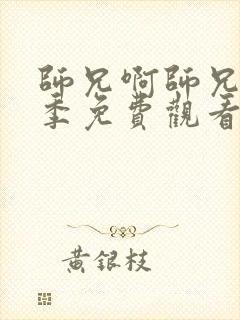 師兄啊師兄
季免費觀看
黃銀枝